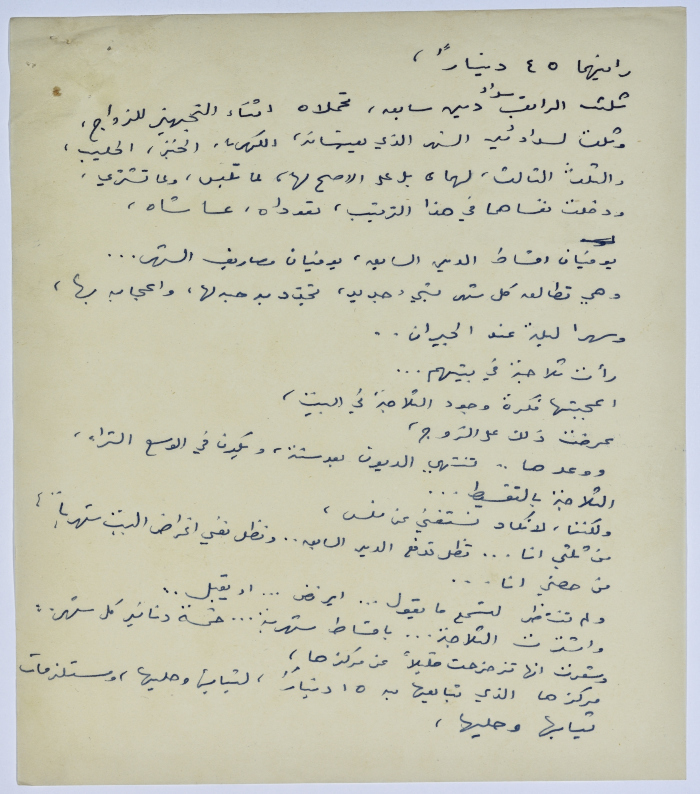 راتبهما ٤٥ دينارًا،
ثلث الراتب سداد دين سابق، تحملاه اثناء التجهيز للزواج،
وثلث لسداد دين الشهر الذي يعيشانه، الكهرباء، الخبز، الحليب،
والثلث الثالث، لهما، بل على الاصح لها، لما تلبس، ولما تشتري،
ودخلت نفساهما في هذا الترتيب، تعوداه، عاشاه،
يوفيان اقساط الدين السابق، يوفيان مصاريف الشهر...
وهي تطالعه كل شهر بشيء جديد، تختاد به حبه لها، واعجابه بها،
وسهرا ليلة عند الجيران..
رأت ثلاجة في بيتهم...
اعجبتها فكرة وجود الثلاجة في البيت،
عرضت ذلك على الزوج،
ووعدها.. تنتهي الديون بعد سنة، ويكون في الوسع الشراء،
الثلاجة بالتقسيط...
ولكننا، لا نكاد نستغني عن فلس،
من ثلثي انا... تظل تدفع الدين السابق.. وتظل تفي اغراض البيت شهرياً،
من حصتي انا...
ولم تنتظر لتسمع ما يقول... ايرفض... او يقبل..
واشترت الثلاجة... باقساط شهرية... خمسة دنانير كل شهر..
وشعرت انها تزحزحت قليلاً عن مركزها،
مركزها الذي تبايعها به ١٥ ديناراً، لثيابها وحليها، ومستلزمات
ثيابها وحليها،